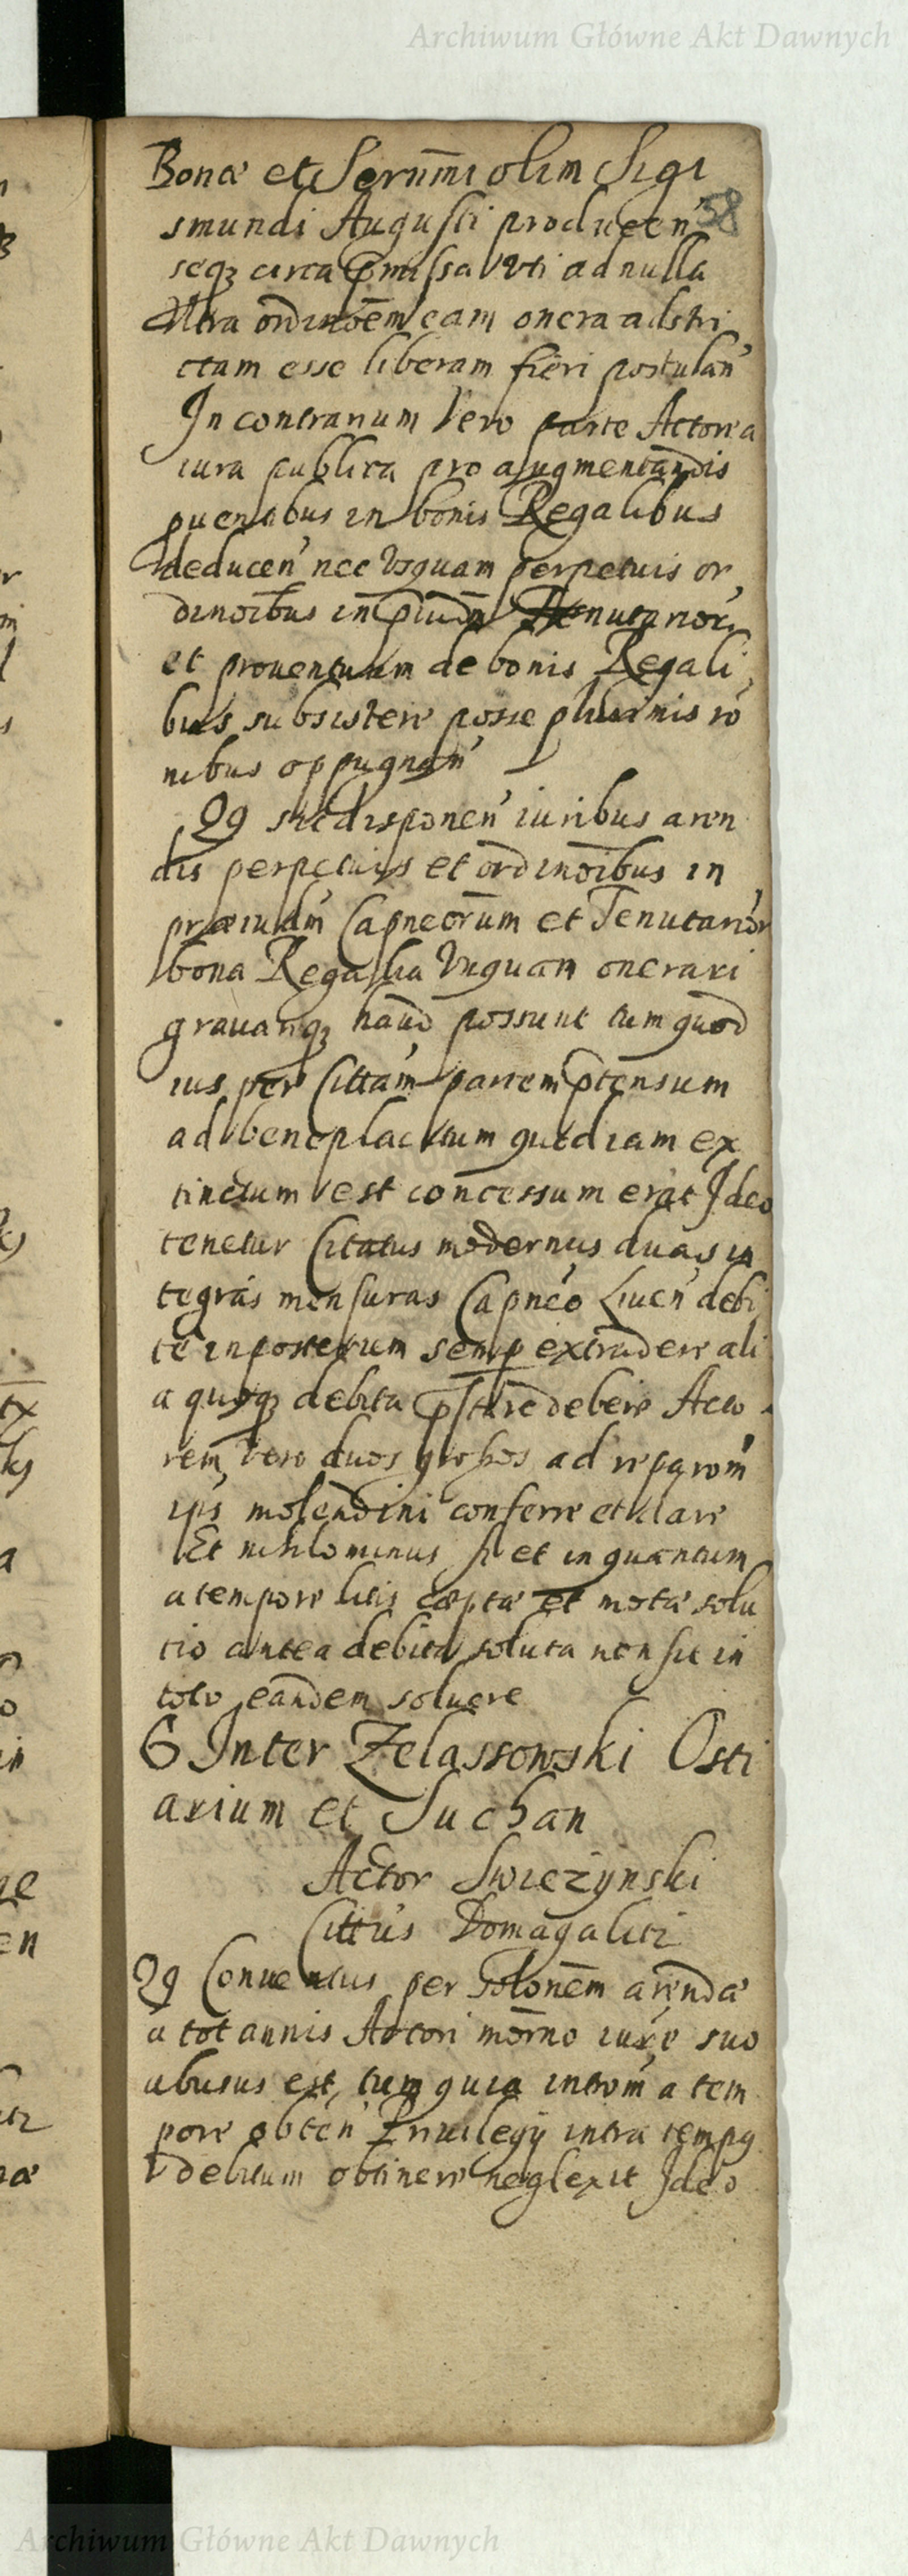 Archiwum Główne Akt Dawnych
58
Bonæ et Sernm̄i olim Sigi
smundi Augusti producen'
seqꝫ circa p̄missa vti ad nulla
Ultra ordinōem eam onera adstri
ctam esse liberam fieri postulan'
In contrarium Vero parte Actorea
iura publica pro augmentandis
puentibus in bonis Regalibus
deducen' nec Vsquam perpetuis or
dinoībus in p̄iudm̄ Tenutarior'
et prouentuum de bonis Regali
bus subsistere posse plurimis ro
nibus oppugnan'
Q9 sic disponen' iuribus aren
dis perpetuis et ordinoībus in
præiudm̄ Capneorūm et Tenutarior'
bona Regalia Vnquam onerari
grauariqꝫ haud possunt tum quod
ius per Cittam' partem p̄tensum
ad beneplacitum quod iam ex
tinctum est concessum erat Ideo
tenetur Citatus modernus duas in
tegras mensuras Capneo Liuen' debi
te inposterum semp extradere ali
a quoqꝫ debita p̄stāre debere Acto
rem Vero duos grossos ad reparom'
ips molendini conferre et dare
Et nihlominus si et in quantum
a tempore litis cæptæ et motæ solu
tio antea debita soluta non sit in
toto eandem soluere
6 Inter Zelassowski Osti
arium et Suchan
Actor Swiezynski
Cittus Domagalici
Q9 Conventus per Solonēm arendæ
a tot annis Actori mōrno iure suo
abusus est, tum quia introm' a tem
pore obten' Priuilegij intra tempq
debitum obtinere neglexit Ideo
Archiwum Główne Akt Dawnych